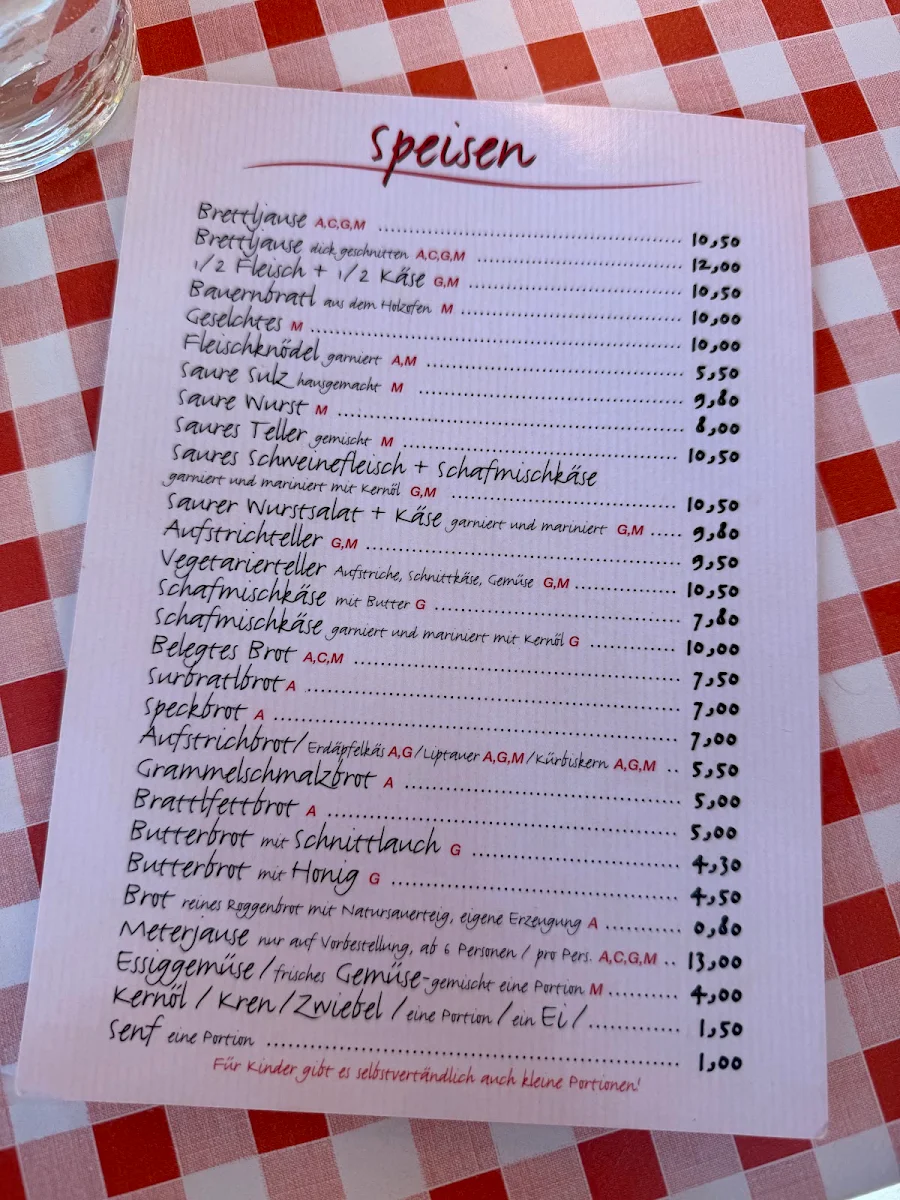 Speisen
Brettljause A,C,G,M ........ 10,50
Brettljause dick geschnitten A,C,G,M ........ 12,00
1/2 Fleisch + 1/2 Käse G,M ........ 10,50
Bauernbratl aus dem Holzofen M ........ 10,00
Geselchtes M ........ 10,00
Fleischknödel garniert A,M ........ 5,50
Saure Sulz hausgemacht M ........ 9,80
Saure Wurst M ........ 8,00
Saures Teller gemischt M ........ 10,50
Saures Schweinefleisch + Schafmischkäse
garniert und mariniert mit Kernöl G,M ........ 10,50
Saurer Wurstsalat + Käse garniert und mariniert G,M ..... 9,80
Aufstrichteller G,M ........ 9,50
Vegetarierteller Aufstriche, Schnittkäse, Gemüse G,M ........ 10,50
Schafmischkäse mit Butter G ........ 7,80
Schafmischkäse garniert und mariniert mit Kernöl G ........ 10,00
Belegtes Brot A,C,M ........ 7,50
Surbratlbrot A ........ 7,00
Speckbrot A ........ 7,00
Aufstrichbrot/Erdäpfelkäs A,G/Liptauer A,G,M/Kürbiskern A,G,M .. 5,50
Grammelschmalzbrot A ........ 5,00
Brattlfettbrot A ........ 5,00
Butterbrot mit Schnittlauch G ........ 4,30
Butterbrot mit Honig G ........ 4,50
Brot reines Roggenbrot mit Natursauerteig, eigene Erzeugung A ........ 0,80
Meterjause nur auf Vorbestellung, ab 6 Personen / pro Pers. A,C,G,M .. 13,00
Essiggemüse/frisches Gemüse-gemischt eine Portion M ........ 4,00
Kernöl / Kren/Zwiebel /eine Portion/ein Ei/ ........ 1,50
Senf eine Portion ........ 1,00
Für Kinder gibt es selbstvertändlich auch kleine Portionen!